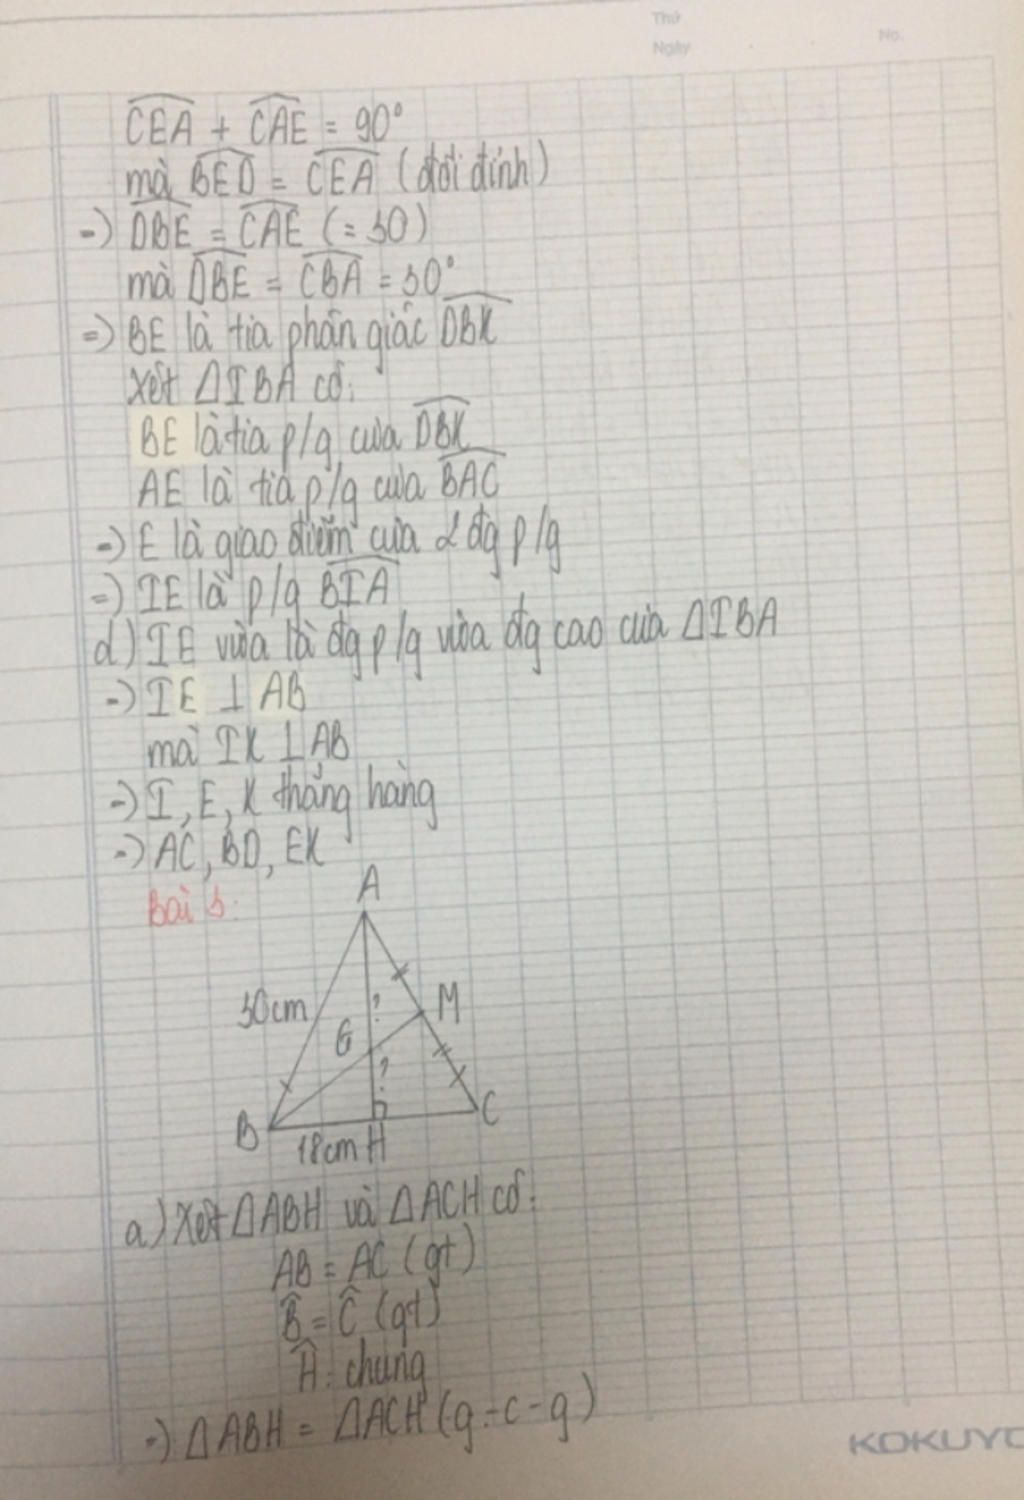 Thứ
Ngày
No.
CEA + CAE = 90°
mà BED = CEA (đối đỉnh)
=) DBE = CAE (= 30)
mà DBE = CBA = 30°
=) BE là tia phân giác DBK
Xét ΔIBA có:
BE là tia p/g của DBK
AE là tia p/g của BAC
=) E là giao điểm của 2 đg p/g
=) IE là p/g BIA
d) IE vừa là đg p/g vừa đg cao của ΔIBA
=) IE ⊥ AB
mà IK ⊥ AB
=) I, E, K thẳng hàng
=) AC, BD, EK
Bài 3:
A
30cm
?
M
G
?
B
18cm
H
C
a) Xét ΔABH và ΔACH có:
AB = AC (gt)
B̂ = Ĉ (gt)
Ĥ: chung
=) ΔABH = ΔACH (g-c-g)
KOKUYO